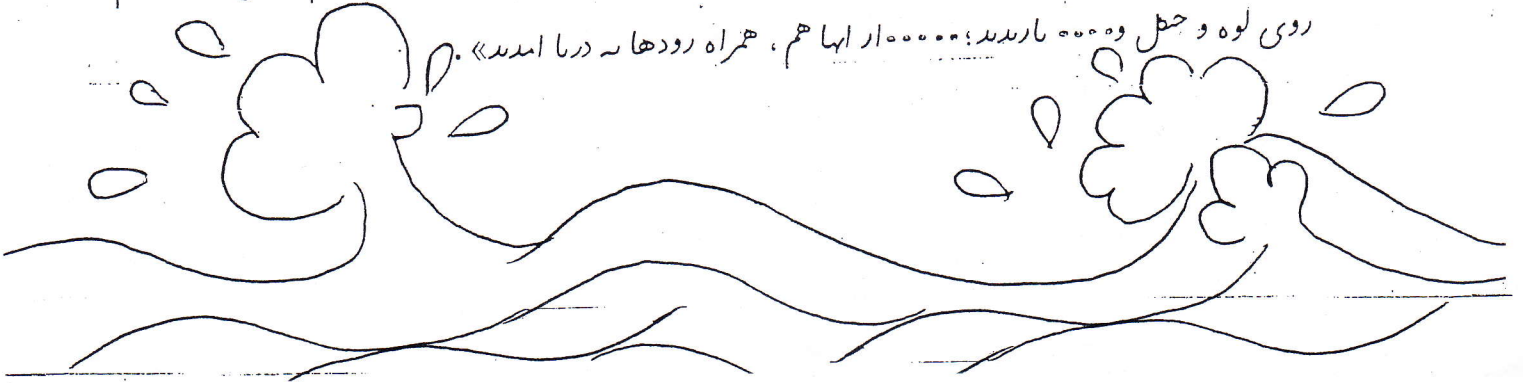 روی کوه و جنگل و.... باریدند؛.....از آنها هم، همراه رودها به دریا آمدند».